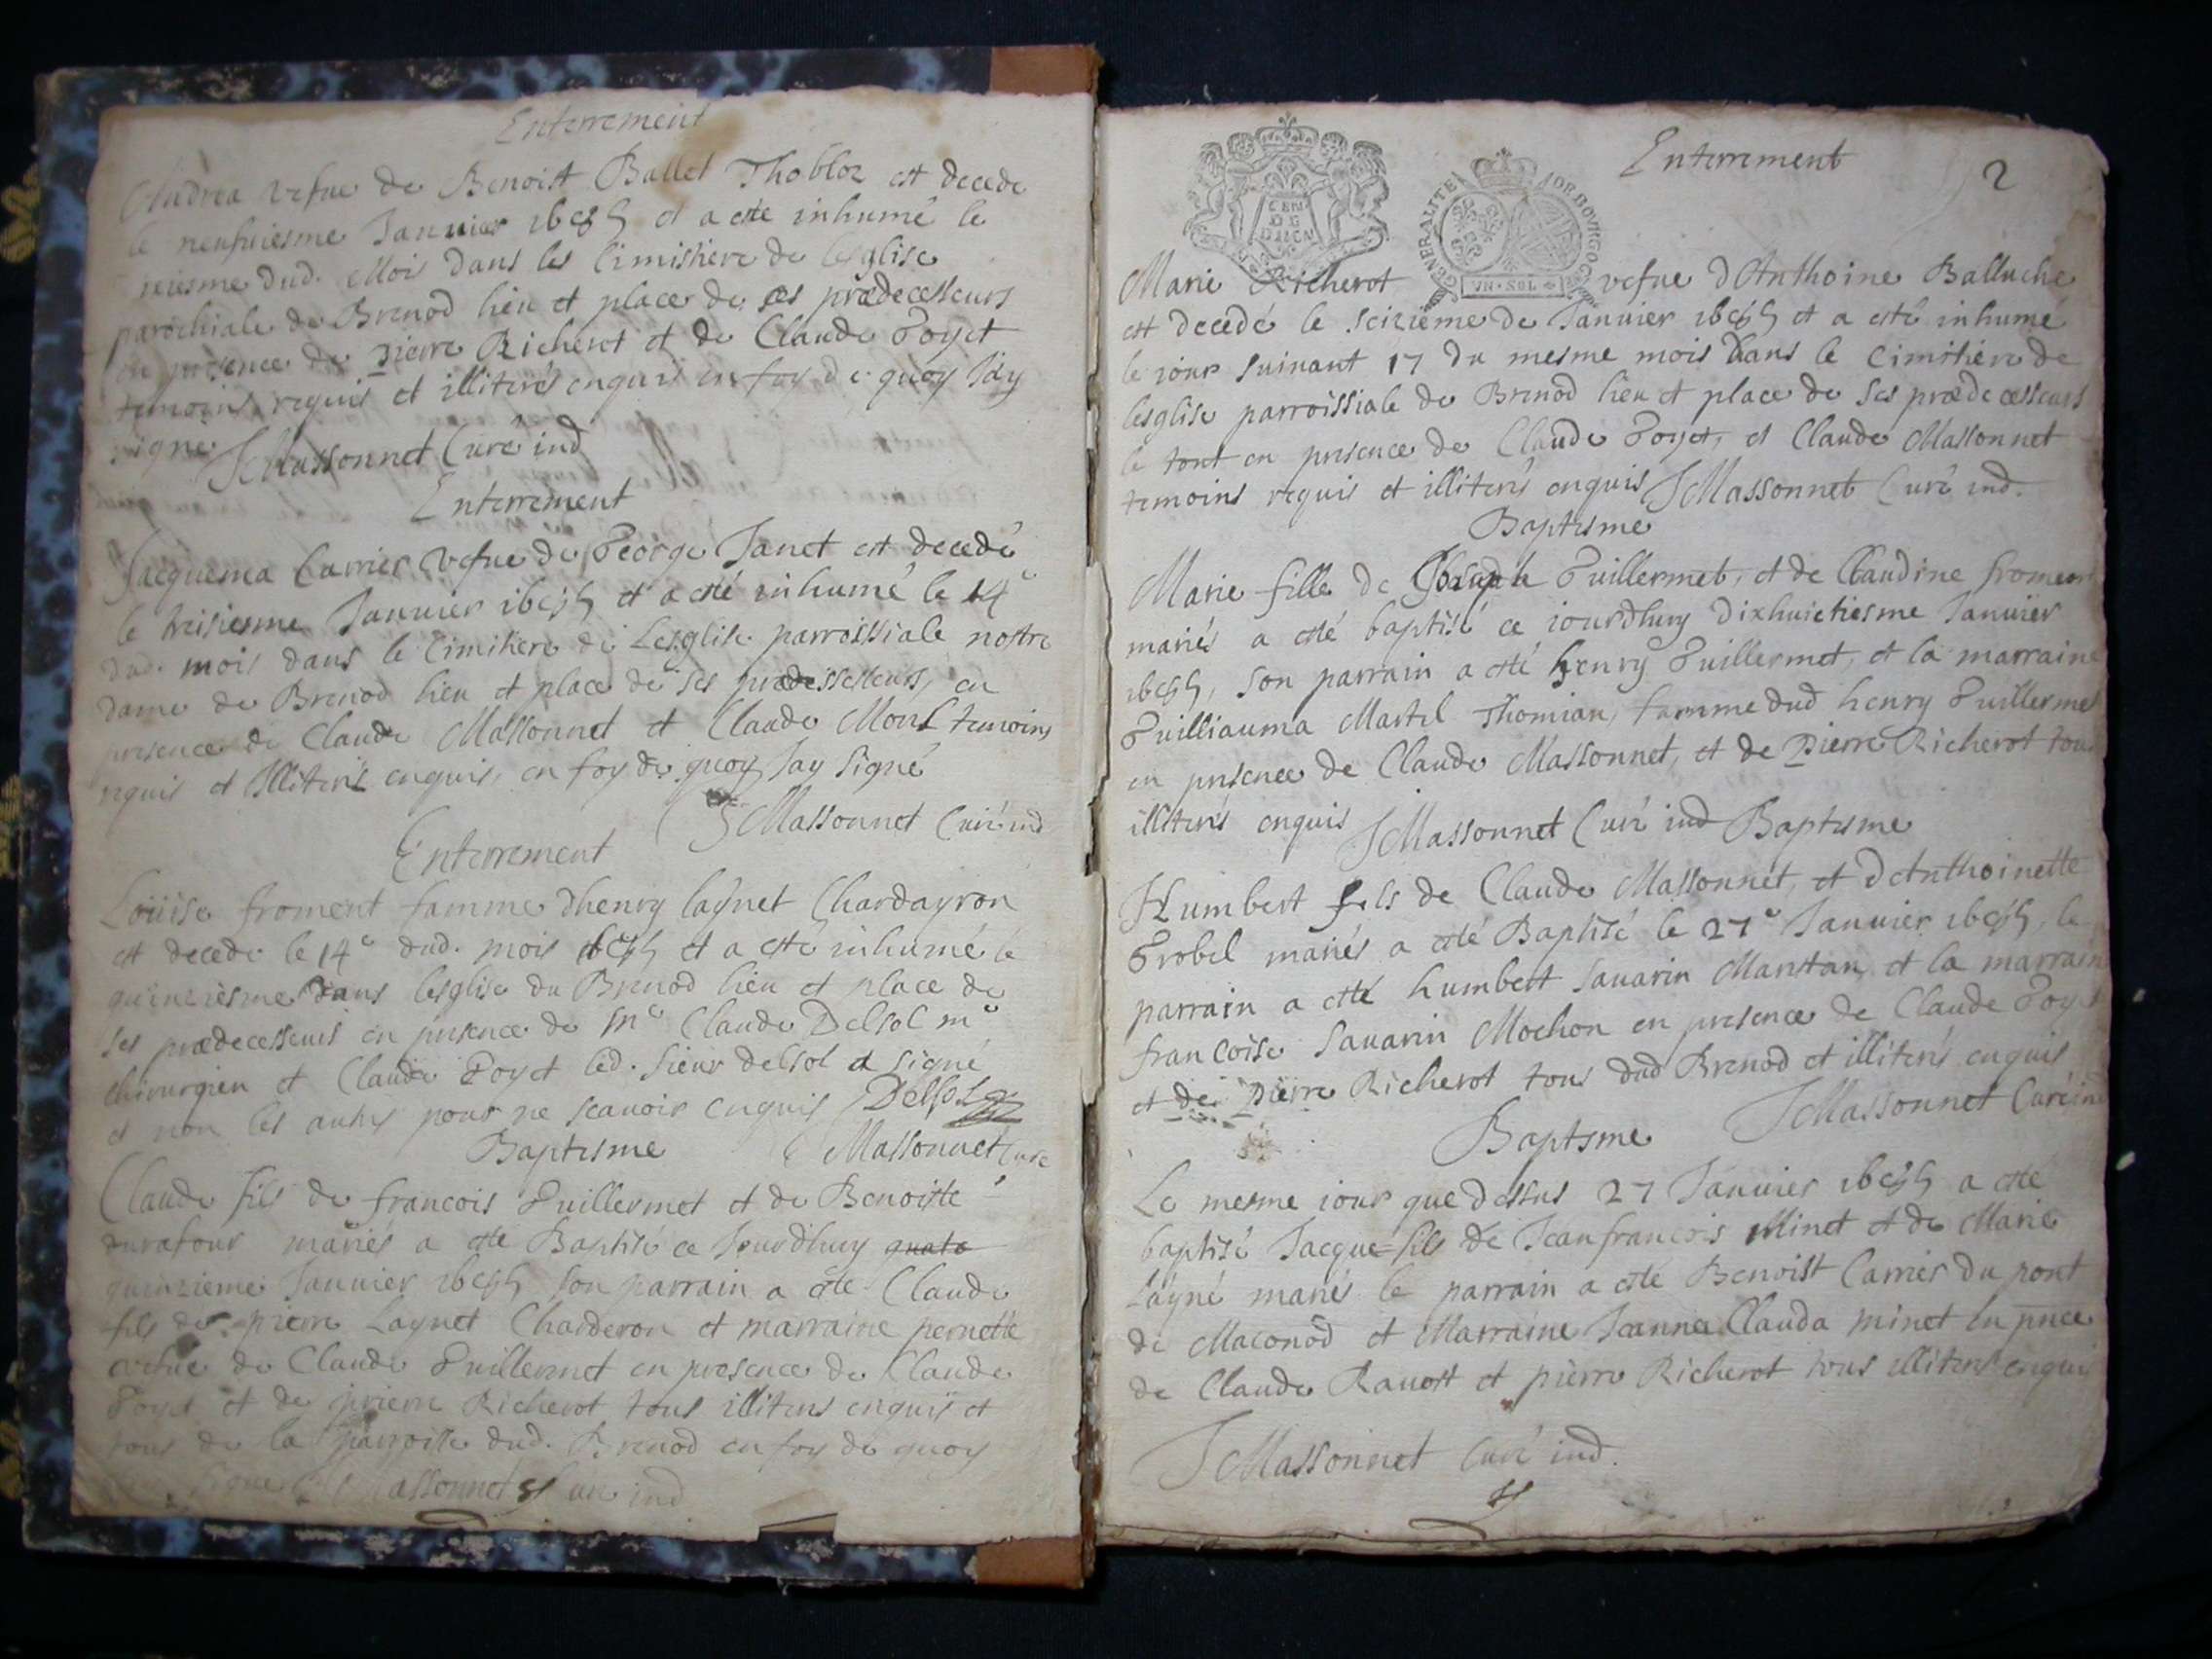 Enterrement
Andrea vefue de Benoist Ballet Thobloz est decede
le neufuiesme Januier et a esté inhumé le
dud. Mois dans les Cimistiere de leglise
parochiale de Brenod lieu et place de ses prædecesseurs
en presence de pierre Richerot et de Claude Goyet
temoins requis et illiterés enquis en foy de quoy Jay
signé JMassonnet Curé ind
Enterrement
Jacquema Carrier vefue de George Janet est decedé
le treisiesme Januier et a esté inhumé le 14e
dud. mois dans le Cimitiere de Lesglise parroissiale nostre
dame de Brenod lieu et place de ses prædessesseurs, en
presence de Claude Massonnet et Claude temoins
requis et Illiterés enquis, en foy de quoy Jay Signé
JMassonnet Curé ind
Enterrement
Loüise froment famme dhenry laÿnet Chardayron
est decede le 14e dud. mois et a esté inhumé le
quinziesme dans lesglise du Brenod lieu et place de
ses prædecesseurs en presence de me Claude Delsol me
chirurgien et Claude Goyet led. sieur delsol a signé
et non les autres pour ne scauoir enquis Delsol
Baptesme Massonnet Curé
Claude fils de francois Guillermet et de Benoiste
durafour mariés a esté Baptisé ce Jourdhuy quato
quinzieme Januier son parrain a esté Claude
fils de pierre Laynet Charderon et marraine pernette
vefue de Claude Guillermet en presence de Claude
Goyet et de pierre Richerot tous illiteres enquis et
tous de la parroisse dud. Brenod en foy de quoy
Massonnet Curé ind
Enterrement 2
CEN
DE
DIION
GENERALITE DE BOVRGOGNE
VN·SOL
Marie Richerot vefue dAnthoine Balluche
est decedé le seizieme de Januier et a esté inhumé
le jour suiuant 17 du mesme mois dans le Cimitiere de
lesglise parroissiale de Brenod lieu et place de ses prædecesseurs
le tout en presence de Claude Goyet, et Claude Massonnet
temoins requis et illiterés enquis JMassonnet Curé ind.
Baptesme
Marie fille de Joseph Guillermet, et de Claudine froment
mariés a esté baptisé ce iourdhuy dixhuictiesme Januier
son parrain a esté henry Guillermet, et la marraine
Guilliauma Martel Thomian, famme dud henry Guillermet
en presence de Claude Massonnet, et de Pierre Richerot tous
illiterés enquis JMassonnet Curé ind Baptesme
Humbert fils de Claude Massonnet, et dAnthoinette
Grobel mariés a esté Baptisé le 27e Januier le
parrain a esté humbert Sauarin et la marraine
francoise Sauarin Mochon en presence de Claude Goyet
et de Pierre Richerot tous dud Brenod et illiterés enquis
JMassonnet Curé ind
Baptsme
Le mesme iour que dessus 27 Januier a esté
baptisé Jacque fils de Jeanfrancois Minet et de Marie
Layné mariés le parrain a esté Benoist Carrier du pont
de Maconod et Marraine Jeanne Clauda minet en pnce
de Claude Rauost et pierre Richerot tous illiterés enquis
JMassonnet Curé ind.